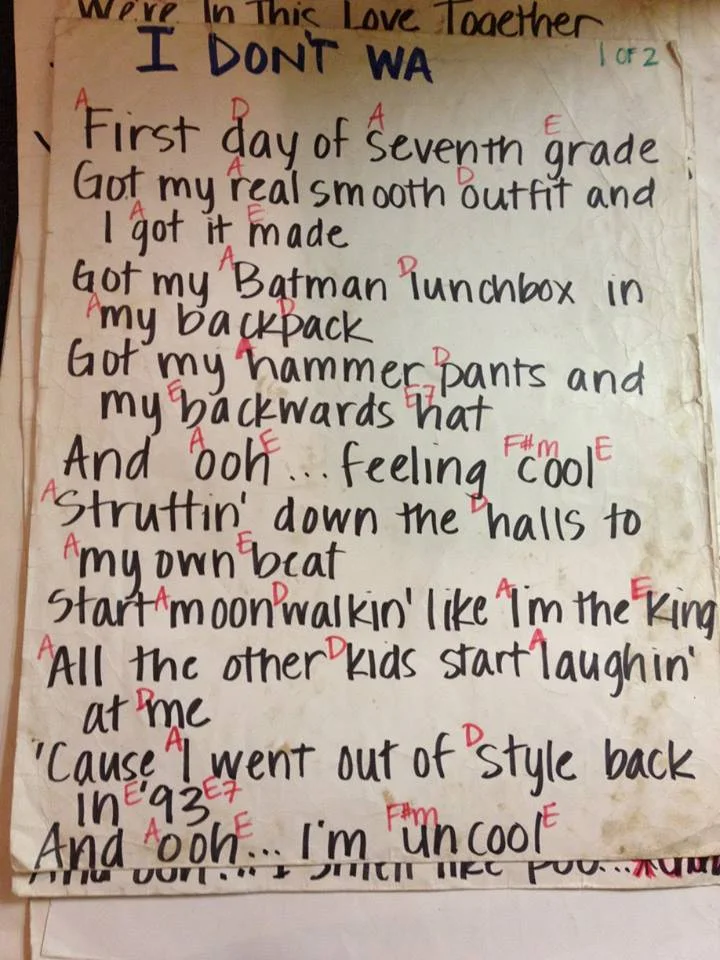 We're In This Love Together
I DON'T WA
1 OF 2
A D A E
First day of seventh grade
A D
Got my real smooth outfit and
A E
I got it made
A D
Got my Batman lunchbox in
A D
my backpack
A D
Got my hammer pants and
E E7
my backwards hat
A E F#m E
And ooh... feeling cool
A D
Struttin' down the halls to
A E
my own beat
A D A E
Start moonwalkin' like I'm the King
A D A
All the other kids start laughin'
D
at me
A D
'Cause I went out of style back
E E7
in '93
A E F#m E
And ooh... I'm uncool
And ooh... I smell like poo...